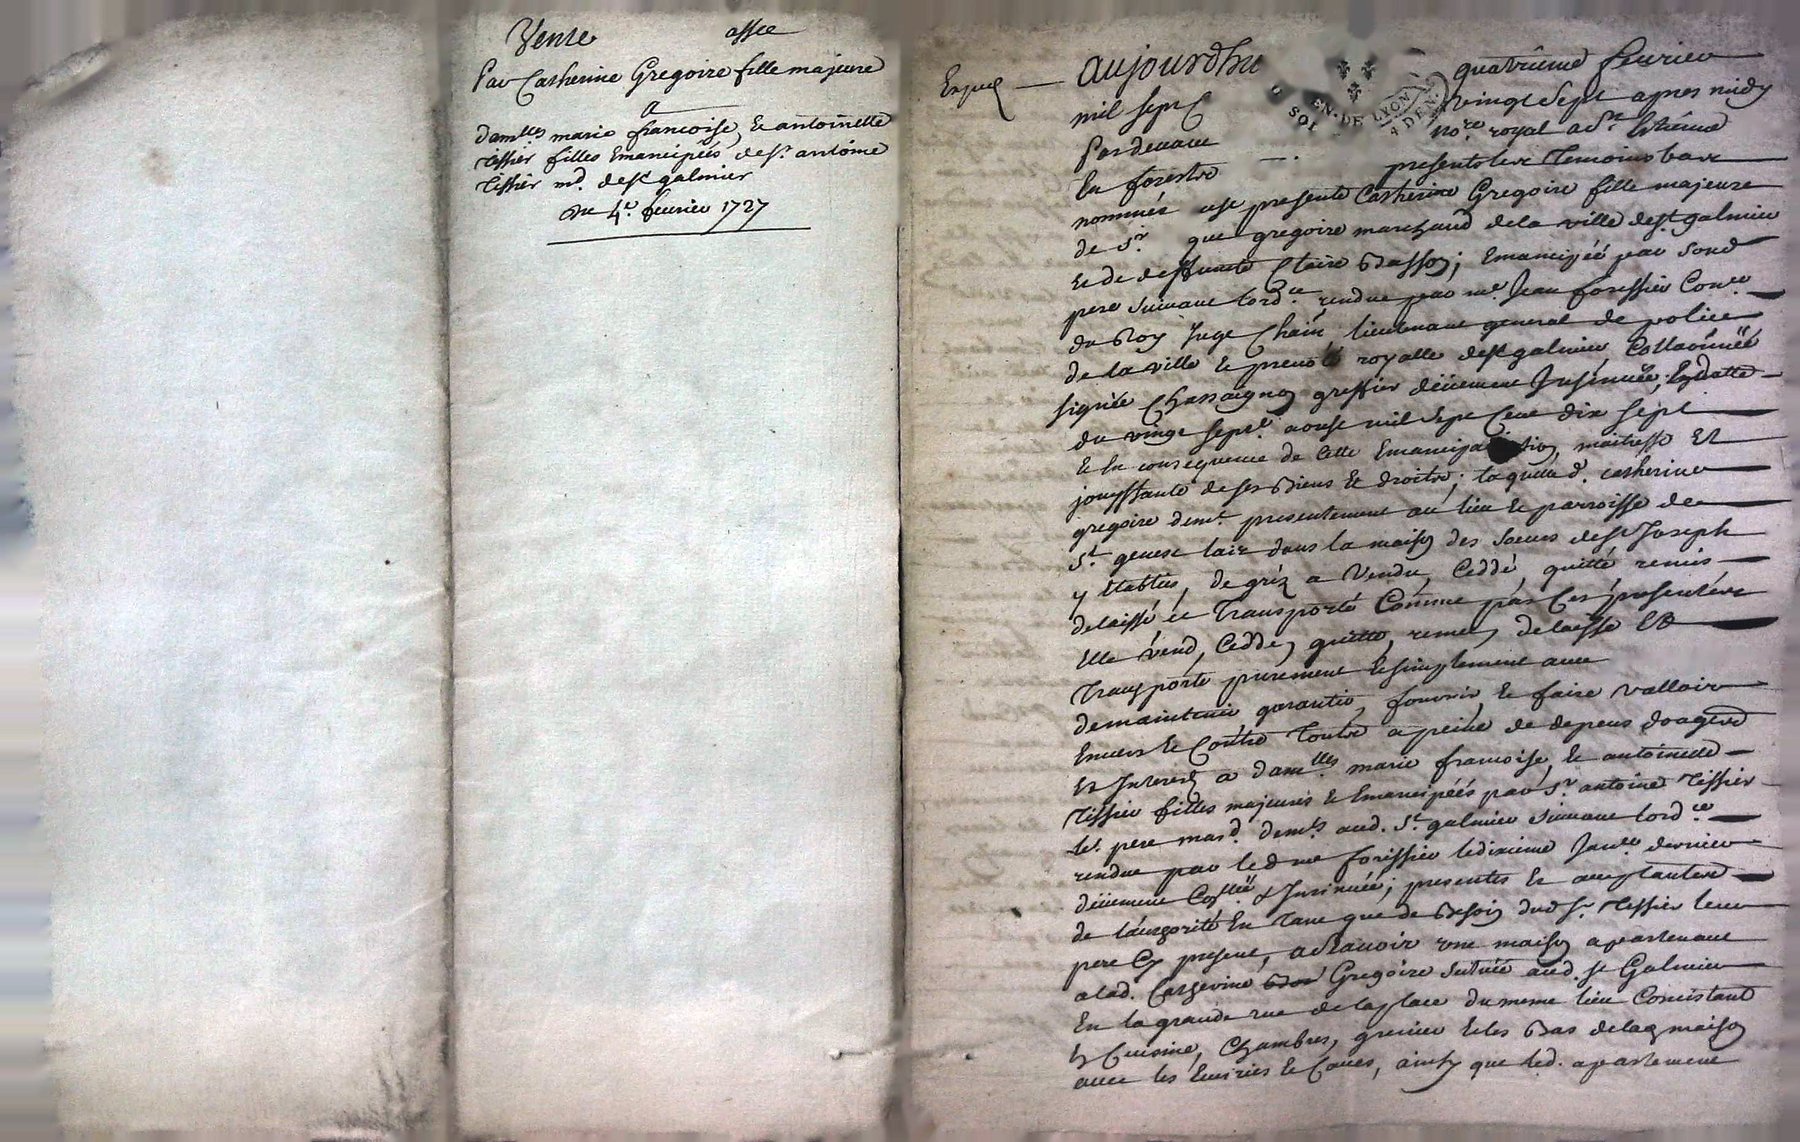 Vente assee
Par Catherine Gregoire fille majeure
a
dam.lles marie francoise, & antoinette
tissier filles Emancipéés de s.r antoine
tissier m.d de s.t galmier
du 4.e feurier 1727
aujourdhu quatriéme feurier
mil sept vingt sept apres midy
Pardeuant no.re royal
En forestz presents les Temoins bas
nommés est presente Catherine Gregoire fille majeure
de s.r que gregoire marchand de la ville de s.t galmier
et de deffunte Claire ; Emancipéé par sond
pere suiuant lord.ce rendue par m.e Jean forissier Con.er
du Roy Juge Chain lieutenant general de police
de la ville & preuoté royalle de s.t galmier Collaonneé
signéé Chassaignon greffier düement Insinuéé, En datte
du vingt sept.e aoust mil sept Cent dix sept
& En consequence de cette Emancipation, maitresse Et
jouyssante de ses Biens & droits ; laquelle d. catherine
gregoire dem.t presentement au lieu & parroisse de
s.t genest lair dans la maison des soeurs de s.t Joseph
y Etablies, de gréz a Vendu, Ceddé, quitté remis
delaissé et Transporté Comme par Ces presentes
Elle vend, Cedde, quitte, remet, delaisse Et
Transporte purement & simplement auec
de maintenir garantir, fournir, & faire valloir
Enuers & Contre Touts a peine de depens domages
Et Interest a dam.lles marie francoise, & antoinette
tissier filles majeures & Emancipéés par s.r antoine tissier
le pere mar.d dem.t aud. s.t galmier suiuant lord.ce
rendue par led m.e forissier le dixieme Jan.er dernier
düement Coll.ée & Insinuéé ; presentes & acceptantes
de lauthorité En Tant que de Besoin dud s.r tissier leur
pere Cy present, a sauoir une maison apartenant
a lad. Catherine Gregoire situéé aud. st Galmier
En la grande rue de la place du meme lieu Consistant
En Cuisine, Chambres, grenier & les Bas de la maison
auec les Ecuries & Caues, ainsy que led. apartement